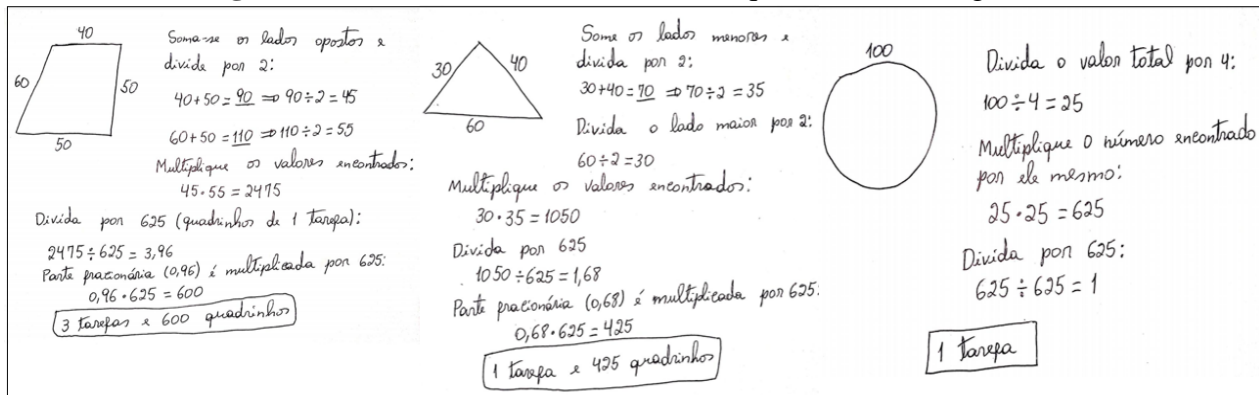 40
60
50
50
Soma-se os lados opostos e
divide por 2:
40+50=90 ⇒ 90÷2=45
60+50=110 ⇒ 110÷2=55
Multiplique os valores encontrados:
45·55=2475
Divida por 625 (quadrinhos de 1 tarefa):
2475÷625=3,96
Parte fracionária (0,96) é multiplicada por 625:
0,96·625=600
3 tarefas e 600 quadrinhos
30
40
60
Some os lados menores e
divida por 2:
30+40=70 ⇒ 70÷2=35
Divida o lado maior por 2:
60÷2=30
Multiplique os valores encontrados:
30·35=1050
Divida por 625
1050÷625=1,68
Parte fracionária (0,68) é multiplicada por 625:
0,68·625=425
1 tarefa e 425 quadrinhos
100
Divida o valor total por 4:
100÷4=25
Multiplique o número encontrado
por ele mesmo:
25·25=625
Divida por 625:
625÷625=1
1 tarefa